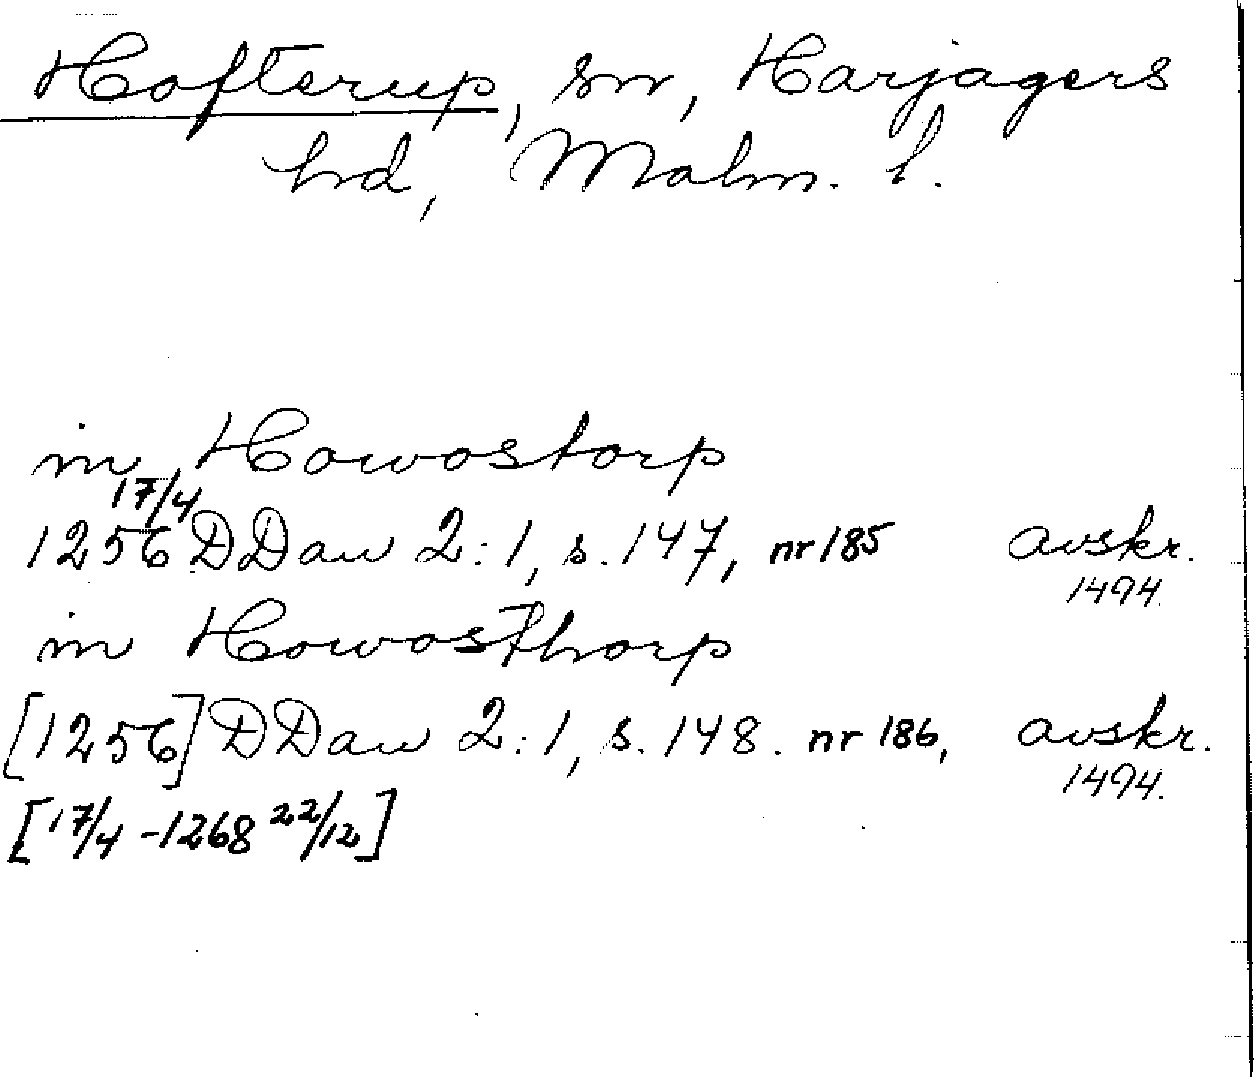 Hofterup, sn, Harjagers
hd, Malm. l.
in Howostorp
17/4
1256 DDan 2:1, s. 147, nr 185 avskr.
1494.
in Howosthorp
[1256] DDan 2:1, s. 148. nr 186, avskr.
1494.
[17/4 - 1268 22/12]